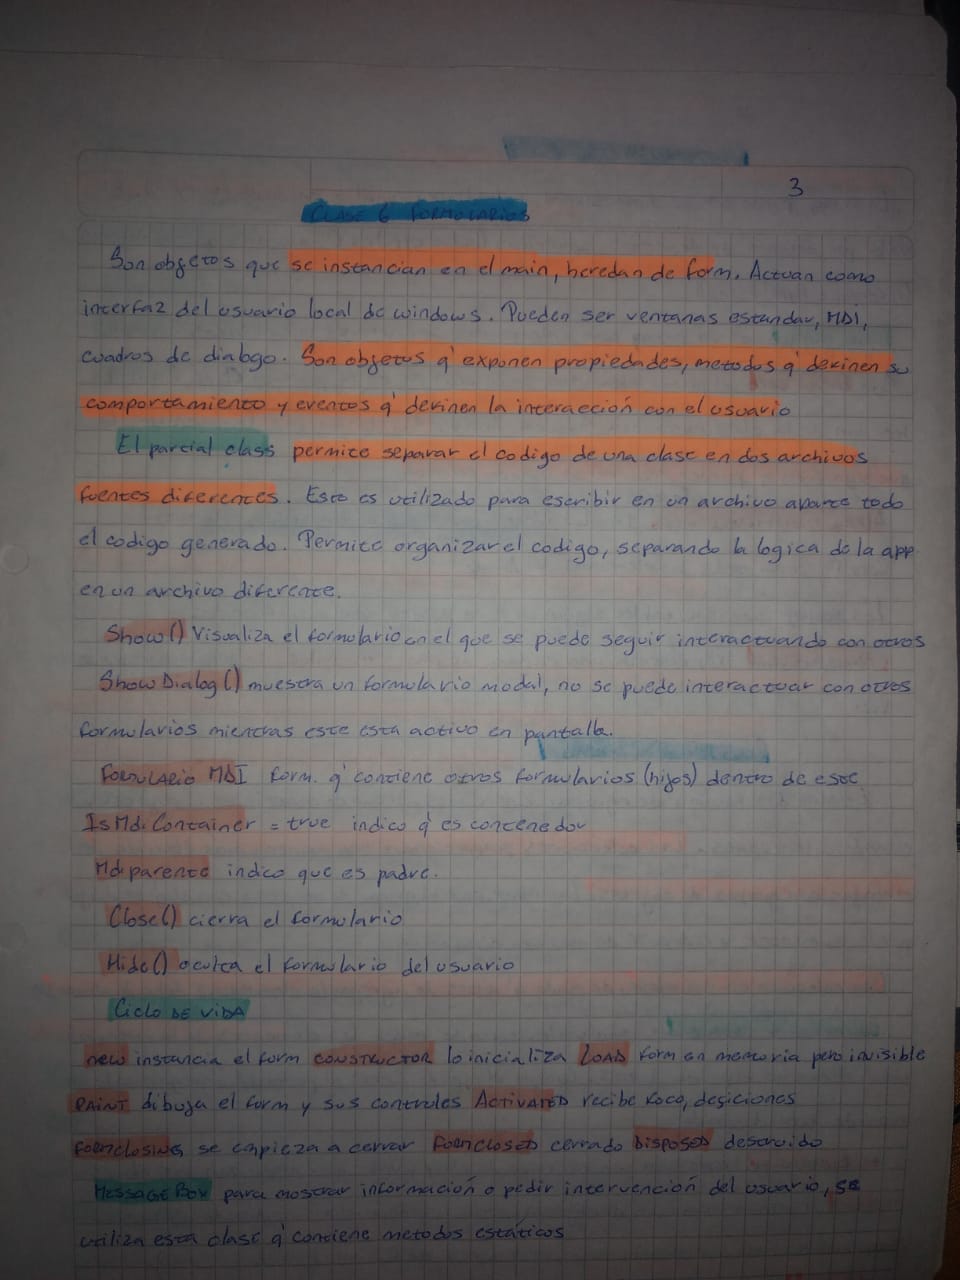 3
CLASE 6 FORMULARIOS
Son objetos que se instancian en el main, heredan de form. Actuan como
interfaz del usuario local de windows. Pueden ser ventanas estandar, MDI,
cuadros de dialogo. Son objetos q' exponen propiedades, metodos q' definen su
comportamiento y eventos q' definen la interacción con el usuario
El parcial class permite separar el codigo de una clase en dos archivos
fuentes diferentes. Esto es utilizado para escribir en un archivo aparte todo
el codigo generado. Permite organizar el codigo, separando la logica de la app
en un archivo diferente.
Show() Visualiza el formulario en el que se puede seguir interactuando con otros
Show Dialog() muestra un formulario modal, no se puede interactuar con otros
formularios mientras este esta activo en pantalla.
FORMULARIO MDI form. q' contiene otros formularios (hijos) dentro de este
IsMdiContainer = true indico q' es contenedor
Mdiparente indico que es padre.
Close() cierra el formulario
Hide() oculta el formulario del usuario
CICLO DE VIDA
new instancia el form CONSTRUCTOR lo inicializa LOAD form en memoria pero invisible
PAINT dibuja el form y sus controles ACTIVATED recibe foco, desiciones
FORMCLOSING se empieza a cerrar FORMCLOSED cerrado DISPOSED destruido
MESSAGE BOX para mostrar información o pedir intervención del usuario, se
utiliza esta clase q' contiene metodos estáticos